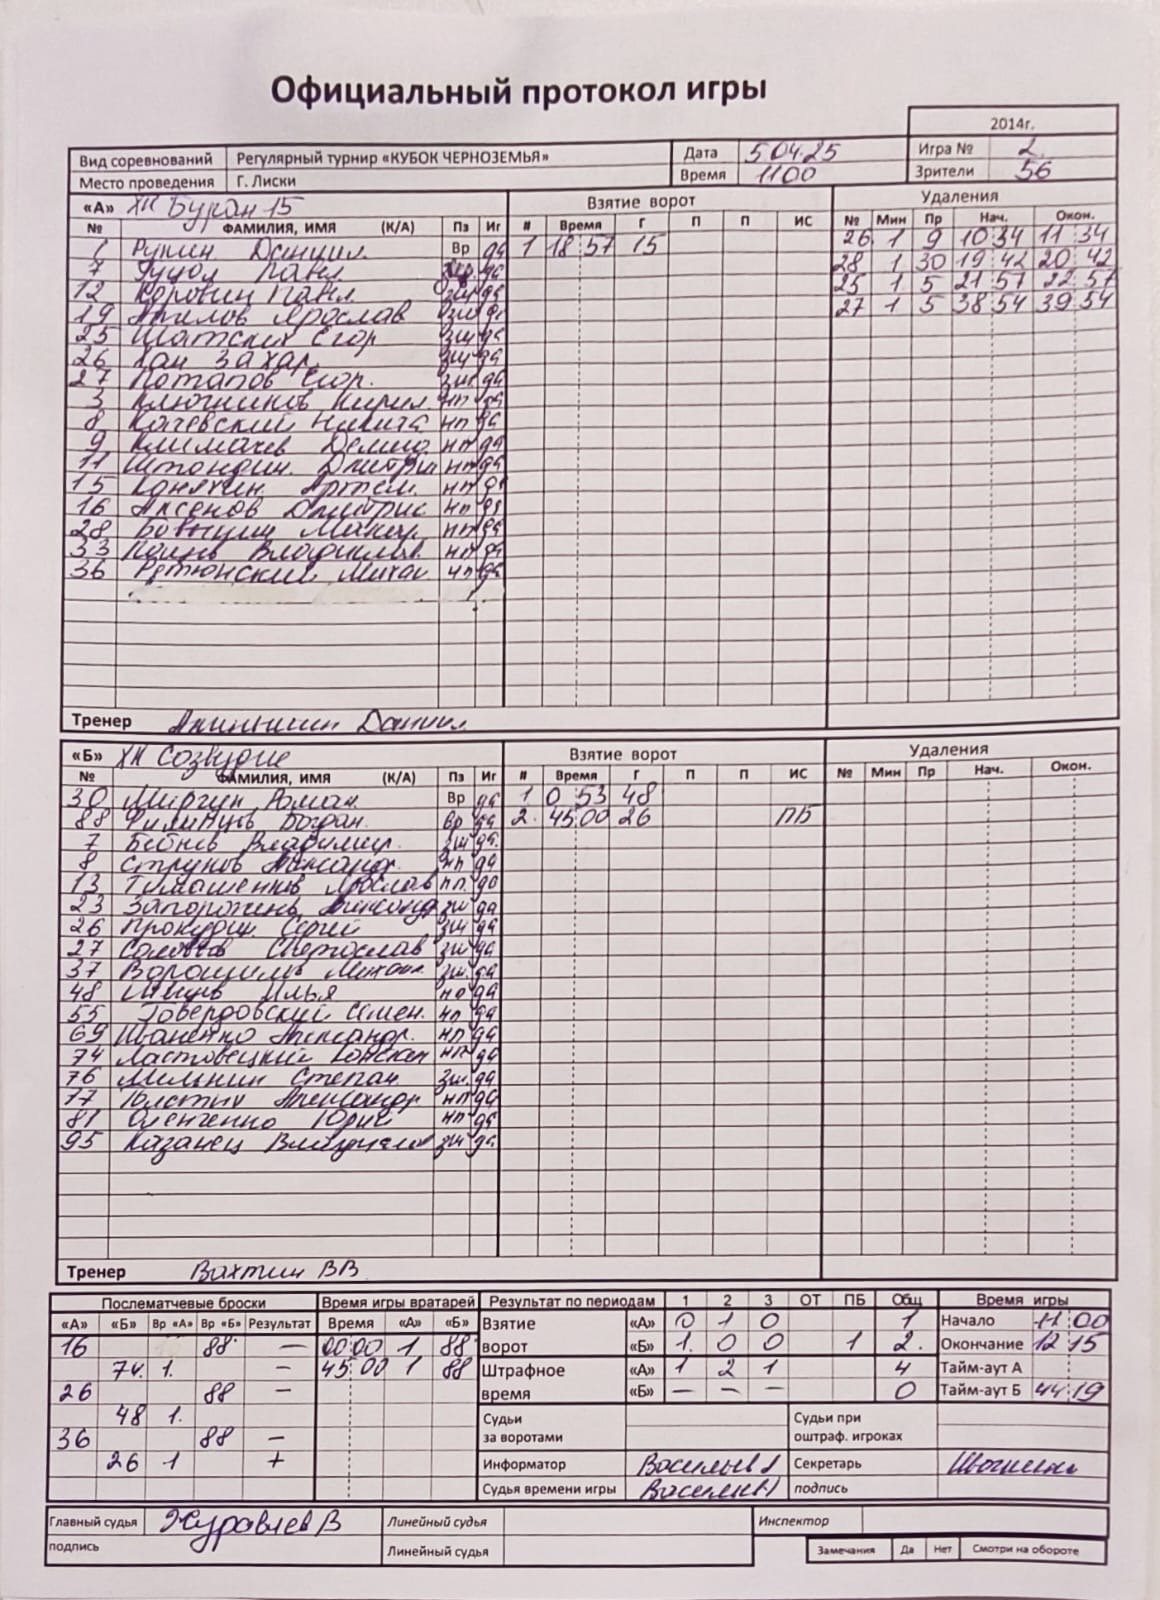 Официальный протокол игры
2014г.
Вид соревнований Регулярный турнир «КУБОК ЧЕРНОЗЕМЬЯ» Дата 5 04.25 Игра № 2.
Место проведения Г. Лиски Время 1100 Зрители 56
«А» ХК Буран 15 Взятие ворот Удаления
№ ФАМИЛИЯ, ИМЯ (К/А) Пз Иг # Время Г П П ИС № Мин Пр Нач. Окон.
1 Рукин Даниил Вр да 1 18 57 15 26 1 9 10 34 11 34
7 28 1 30 19 42 20 42
12 Коровин Павл зщ да 25 1 5 21 57 22 57
19 Ярослав зщ да 27 1 5 38 54 39 54
25 Шатских Егор зщ да
26 Хан Захар зщ да
27 Потапов Егор. зщ да
3 Ключников Кирил. нп да
8 Качевский Никита нп да
9 Климачев нп да
11 Штондин Дмитрий нп да
15 Артем. нп да
16 Аксенов Дмитрий нп да
28 Макар нп да
33 Владислав нп да
36 Ретюнский Михаи нп да
Тренер Даниил
«Б» ХК Созвездие Взятие ворот Удаления
№ ФАМИЛИЯ, ИМЯ (К/А) Пз Иг # Время Г П П ИС № Мин Пр Нач. Окон.
30 Роман Вр да 1 0 53 48
88 Богдан Вр да 2. 45 00 26 ПБ
7 Владимир зщ да
8 Струков Александр нп да
13 Тимашенков Ярослав нп. да
23 зщ да
26 Сергей зщ да
27 Святослав зщ да
37 Ворошилов Михаил зщ. да
48 Илья нп да
55 Говердовский Семен. нп да
69 Иваненко Александр. нп да
74 Ластовецкий нп да
76 Мильнин Степан зщ. да
17 Толстых Александр нп да
81 Юрий нп да
95 Казанец Владислав зщ да
Тренер Вахтин ВВ
Послематчевые броски Время игры вратарей Результат по периодам 1 2 3 ОТ ПБ Общ Время игры
«А» «Б» Вр «А» Вр «Б» Результат Время «А» «Б» Взятие «А» 0 1 0 1 Начало 11 00
16 88 — 00 00 1 88 ворот «Б» 1. 0 0 1 2. Окончание 12 15
74. 1. — 45 00 1 88 Штрафное «А» 1 2 1 4 Тайм-аут А
26 88 — время «Б» — — — 0 Тайм-аут Б 44 19
48 1. Судьи за воротами Судьи при оштраф. игроках
36 88 —
26 1 + Информатор Васильев Секретарь
Судья времени игры Васильев подпись
Главный судья Журавлев В Линейный судья Инспектор
подпись Линейный судья Замечания Да Нет Смотри на обороте